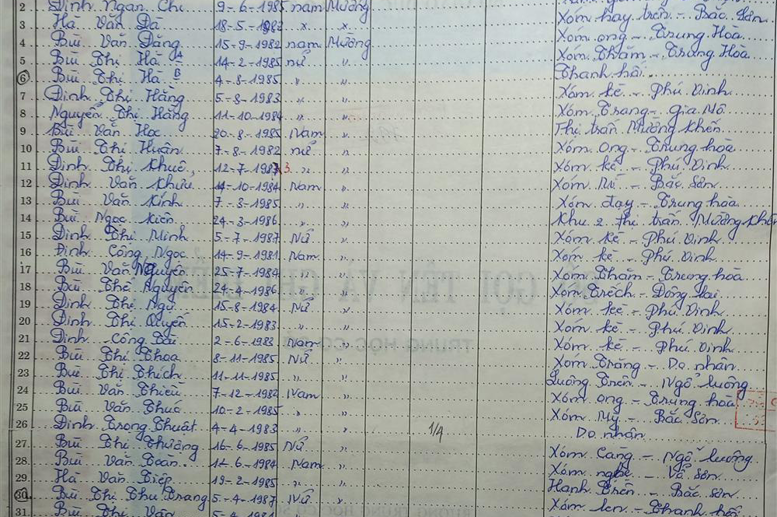 2 Đinh Ngân Chi 9-6-1985 nam Mường
3 Hà Văn Đa 18-5-1982 " " Xóm hay trên - Bắc Sơn
4 Bùi Văn Đăng 15-9-1982 nam Mường Xóm ong - Trung Hòa
5 Bùi Thị Hà A 14-2-1985 nữ " Xóm Thăm - Trung Hòa
6 Bùi Thị Hà B 4-8-1985 " " Thanh hối
7 Đinh Thị Hằng 5-8-1983 " " Xóm kẻ - Phú Vinh
8 Nguyễn Thị Hằng 11-10-1984 " " Xóm Trang - Gia Mô
9 Bùi Văn Học 20-8-1985 Nam " Thị trấn Mường Khến
10 Bùi Thị Huân 7-8-1982 nữ " Xóm ong - Trung hòa
11 Đinh Thị Khuê 12-7-1983 " " Xóm kẻ - Phú Vinh
12 Đinh Văn Khửu 14-10-1984 Nam " Xóm - Bắc Sơn
13 Bùi Văn Kính 7-8-1985 " Xóm - Trung hòa
14 Bùi Ngọc Kiên 24-3-1986 " Khu 2 thị trấn Mường Khến
15 Đinh Thị Minh 5-7-1987 Nữ " Xóm kẻ - Phú Vinh
16 Đinh Công Ngọc 14-9-1981 Nam " Xóm kẻ - Phú Vinh
17 Bùi Văn Nguyên 25-7-1984 " Xóm Thăm - Trung hòa
18 Bùi Thế Nguyên 24-4-1986 " Xóm Trếch - Đông lai
19 Đinh Thị 15-8-1984 Nữ " Xóm kẻ - Phú Vinh
20 Đinh Thị Quyến 15-2-1983 " Xóm kẻ - Phú Vinh
21 Đinh Công 2-6-1983 Nam " Xóm kẻ - Phú Vinh
22 Bùi Thị Thoa 8-11-1985 Nữ " Xóm Trăng - Do nhân
23 Bùi Thị Thích 11-11-1985 " Luông Trên - Ngổ luông
24 Bùi Văn Thiều 7-12-1982 Nam " Xóm ong - Trung hòa
25 Bùi Văn Thuó 10-2-1985 " Xóm Mỹ - Bắc Sơn
26 Đinh Trọng Thuật 4-4-1983 " 1/4 Do nhân
27 Bùi Thị Thường 16-6-1985 Nữ " Xóm Cang - Ngổ luông
28 Bùi Văn Toàn 12-6-1984 Nam " Xóm nghẹ - Sơn
29 Hà Văn Tiếp 19-2-1985 " Hạnh Trên - Bắc Sơn
30 Bùi Thị Thu Trang 5-4-1987 Nữ " Xóm - Thanh hối
31 Bùi Thị Vân